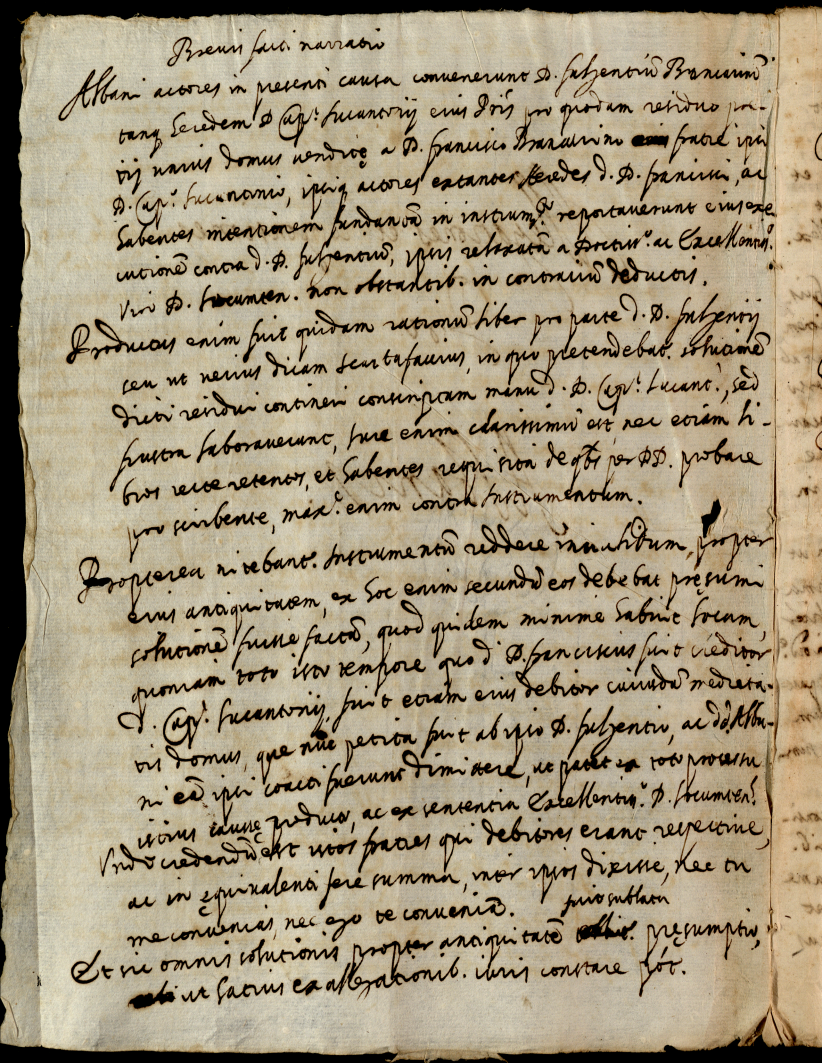 Brevis facti narratio
Albani actores in presenti causa convenerunt D. fulgentiũ Brancarinũ
tanq̃ heredem D Cap.ⁱ lucantonij eius Pr̃is pro quodam residuo pre-
tij unius domus venditę a D. francisco Brancarino fratre ipsi
D. Cap.ⁱ lucantonio, ipsiq̃ actores extantes heredes d. D. francisci, ac
habentes intentionem fundatã in instrum.ᵗᵒ reportaverunt eius exe
cutionẽ contra d. D. fulgentiũ, ipsis relaxatã a Doctiss.º ac Excellentiss.º
Viro D. locumten. non obstantib. in contrariũ deductis.
Productus enim fuit quidam rationũ liber pro parte d. D. fulgentij
seu ut verius dicam scartafacius, in quo pretendebat. solutionẽ
dicti residui contineri conscriptam manu d. D. Cap.ⁱ lucant.ⁱ, sed
frustra laboraverunt, iure enim clarissimũ est, nec etiam li-
bros recte retentos, et habentes requisita de qb̃s per DD. probare
pro scribente, max.ᵉ enim contra Instrumentum.
Propterea nitebant.ʳ Instrumentũ reddere invalidum, propter
eius antiquitatem, ex hoc enim secundũ eos debebat pręsumi
solutionẽ fuisse factã, quod quidem minime habuit locum,
quoniam toto isto tempore quo d D. franciscus fuit creditor
d. Cap.ⁱ lucantonij, fuit etiam eius debitor cuiusdã medieta-
tis domus, que nũc petita fuit ab ipso D. fulgentio, ac dd Alba-
ni eã ipsi coacti fuerunt dimittere, ut patet ex toto processu
istius causę producto, ac ex sententia Excellentiss.ⁱ D. locumten.ᵗⁱˢ
Undè credendũ est istos fratres qui debitores erant respective,
ac in ęquivalenti fere summa, inter ipsos dixisse, nec tu
me convenias, nec ego te conveniã.
fuit sublata
Et sic omnis solutionis propter antiquitatẽ pręsumptio,
ut latius ex allegationib. iuris constare põt.